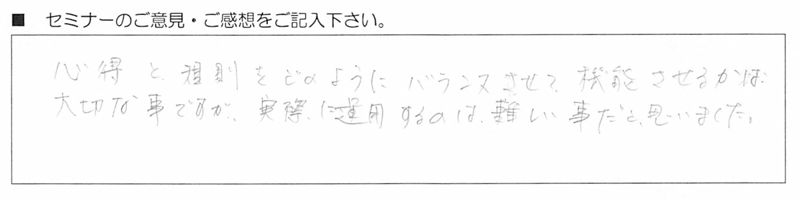 ■ セミナーのご意見・ご感想をご記入下さい。
心得と規則をどのようにバランスさせて、機能させるかは
大切な事ですが、実際に運用するのは、難しい事だと思いました。